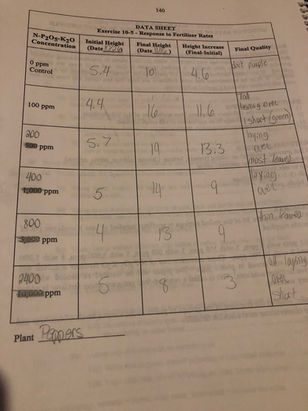 140
DATA SHEET
Exercise 10-5 - Response to Fertilizer Rates
N-P2O5-K2O Concentration
Initial Height (Date
Final Height (Date
Height Increase (Final-Initial)
Final Quality
0 ppm Control
5.4
10
4.6
purple
100 ppm
4.4
16
11.6
1 short (green)
200
500 ppm
5.7
19
13.3
laying
over
most leaves
400
1,000 ppm
5
14
9
laying
over
800
5,000 ppm
4
13
9
leaves
2400
10,000 ppm
5
8
3
all laying
over
short
Plant Peppers